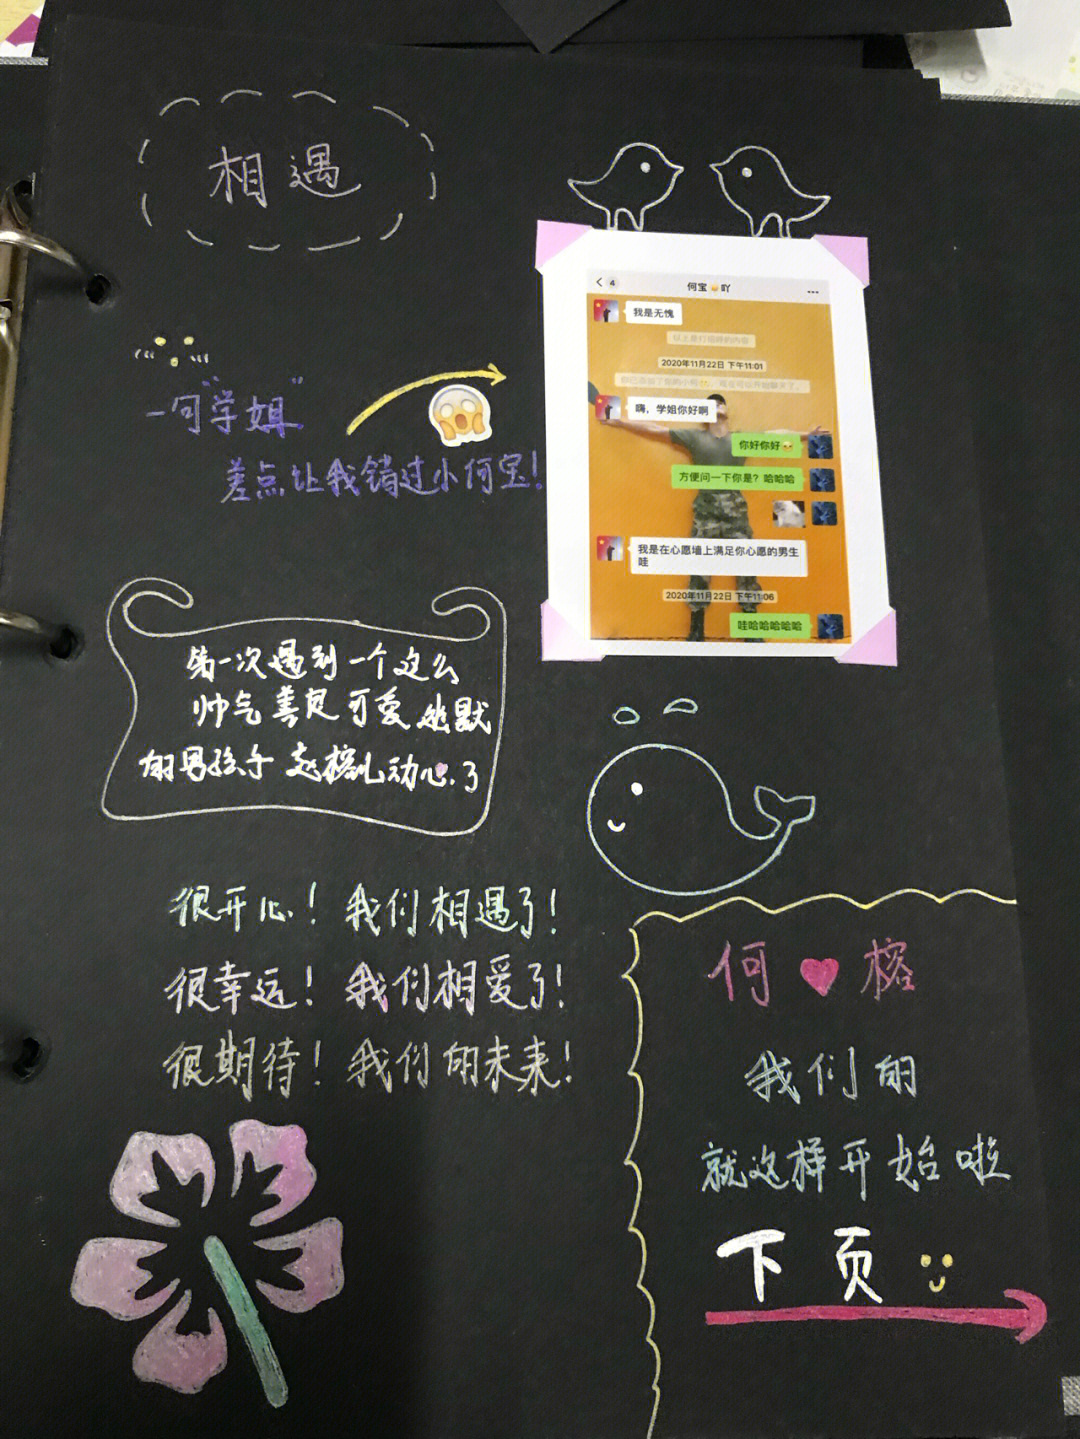 相遇
一句"学姐"
差点让我错过小何宝!
4
何宝😊吖
我是无愧
以上是打招呼的内容
2020年11月22日 下午11:01
嗨，学姐你好啊
你好你好
方便问一下你是？哈哈哈
我是在心愿墙上满足你心愿的男生
哇
2020年11月22日 下午11:06
哇哈哈哈哈哈
第一次遇到一个这么
帅气善良可爱幽默
的男孩子 赵榕儿动心了
很开心！我们相遇了！
很幸运！我们相爱了！
很期待！我们的未来！
何 ♥ 榕
我们的
就这样开始啦
下页